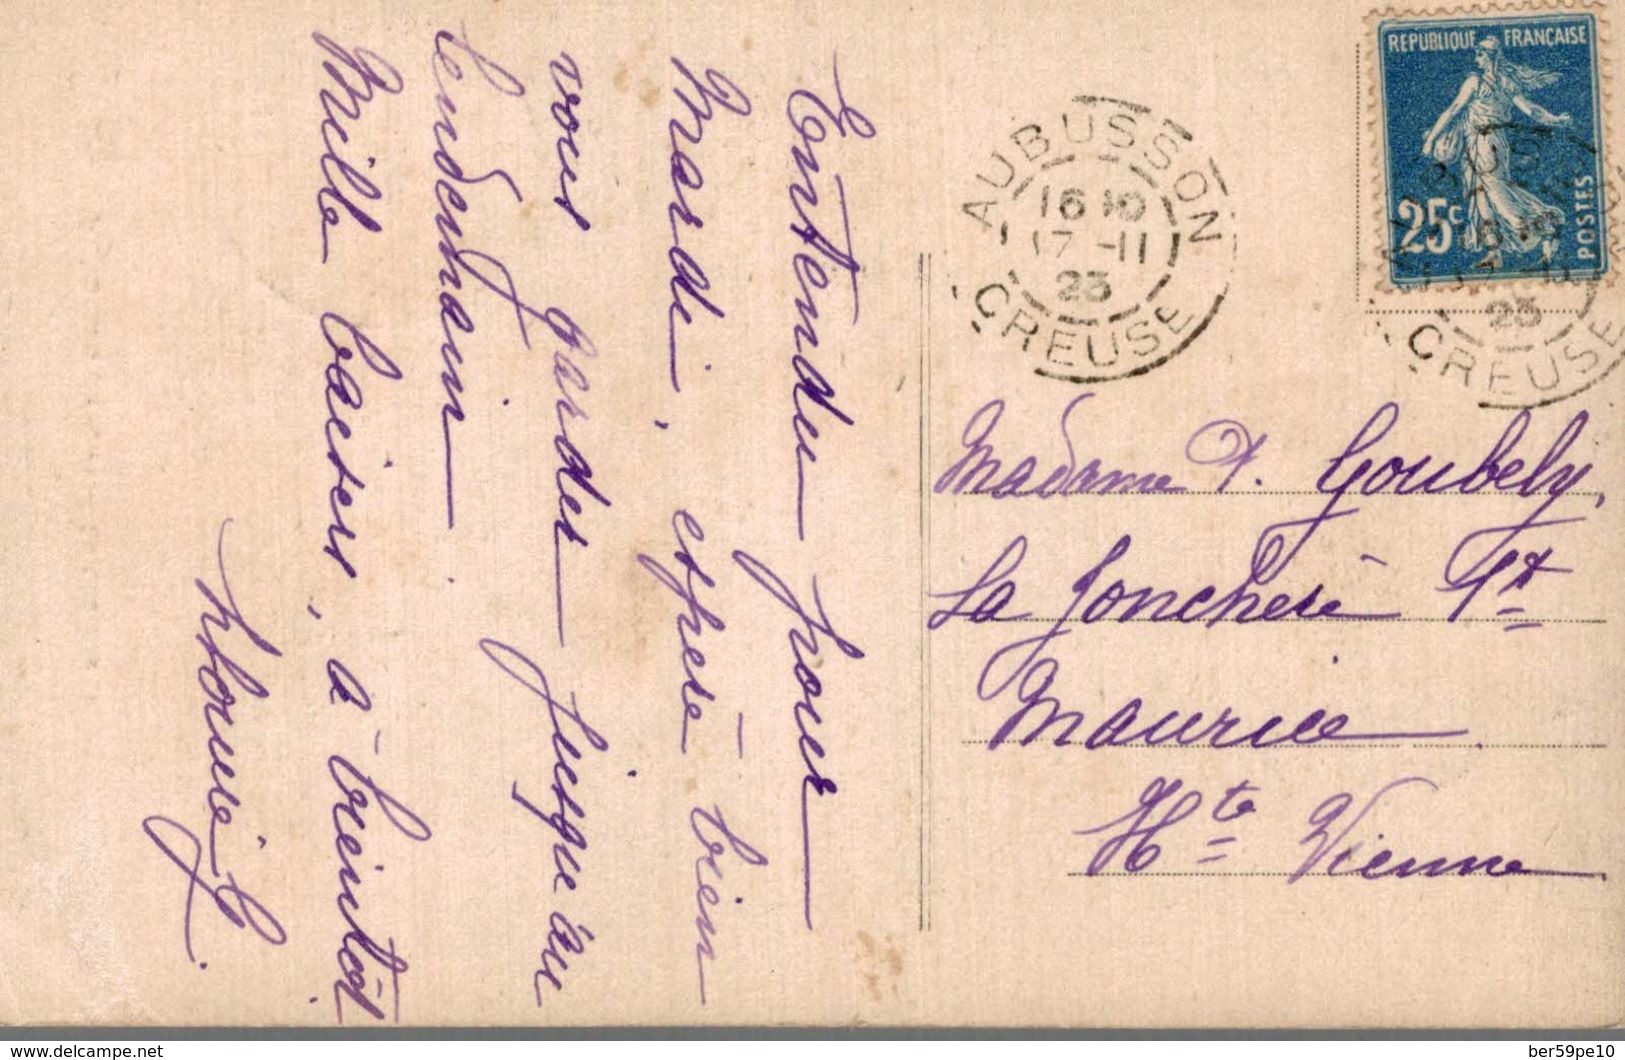 Entendu pour
Mardi, espère bien
vous garder jusqu'au
lendemain
Mille baisers, à bientôt
REPUBLIQUE FRANÇAISE
25c
POSTES
AUBUSSON
16 10
17 -11
23
CREUSE
23
CREUSE
Madame F. Goubely,
La Jonchère St
Maurice
Hte Vienne
www.delcampe.net
ber59pe10